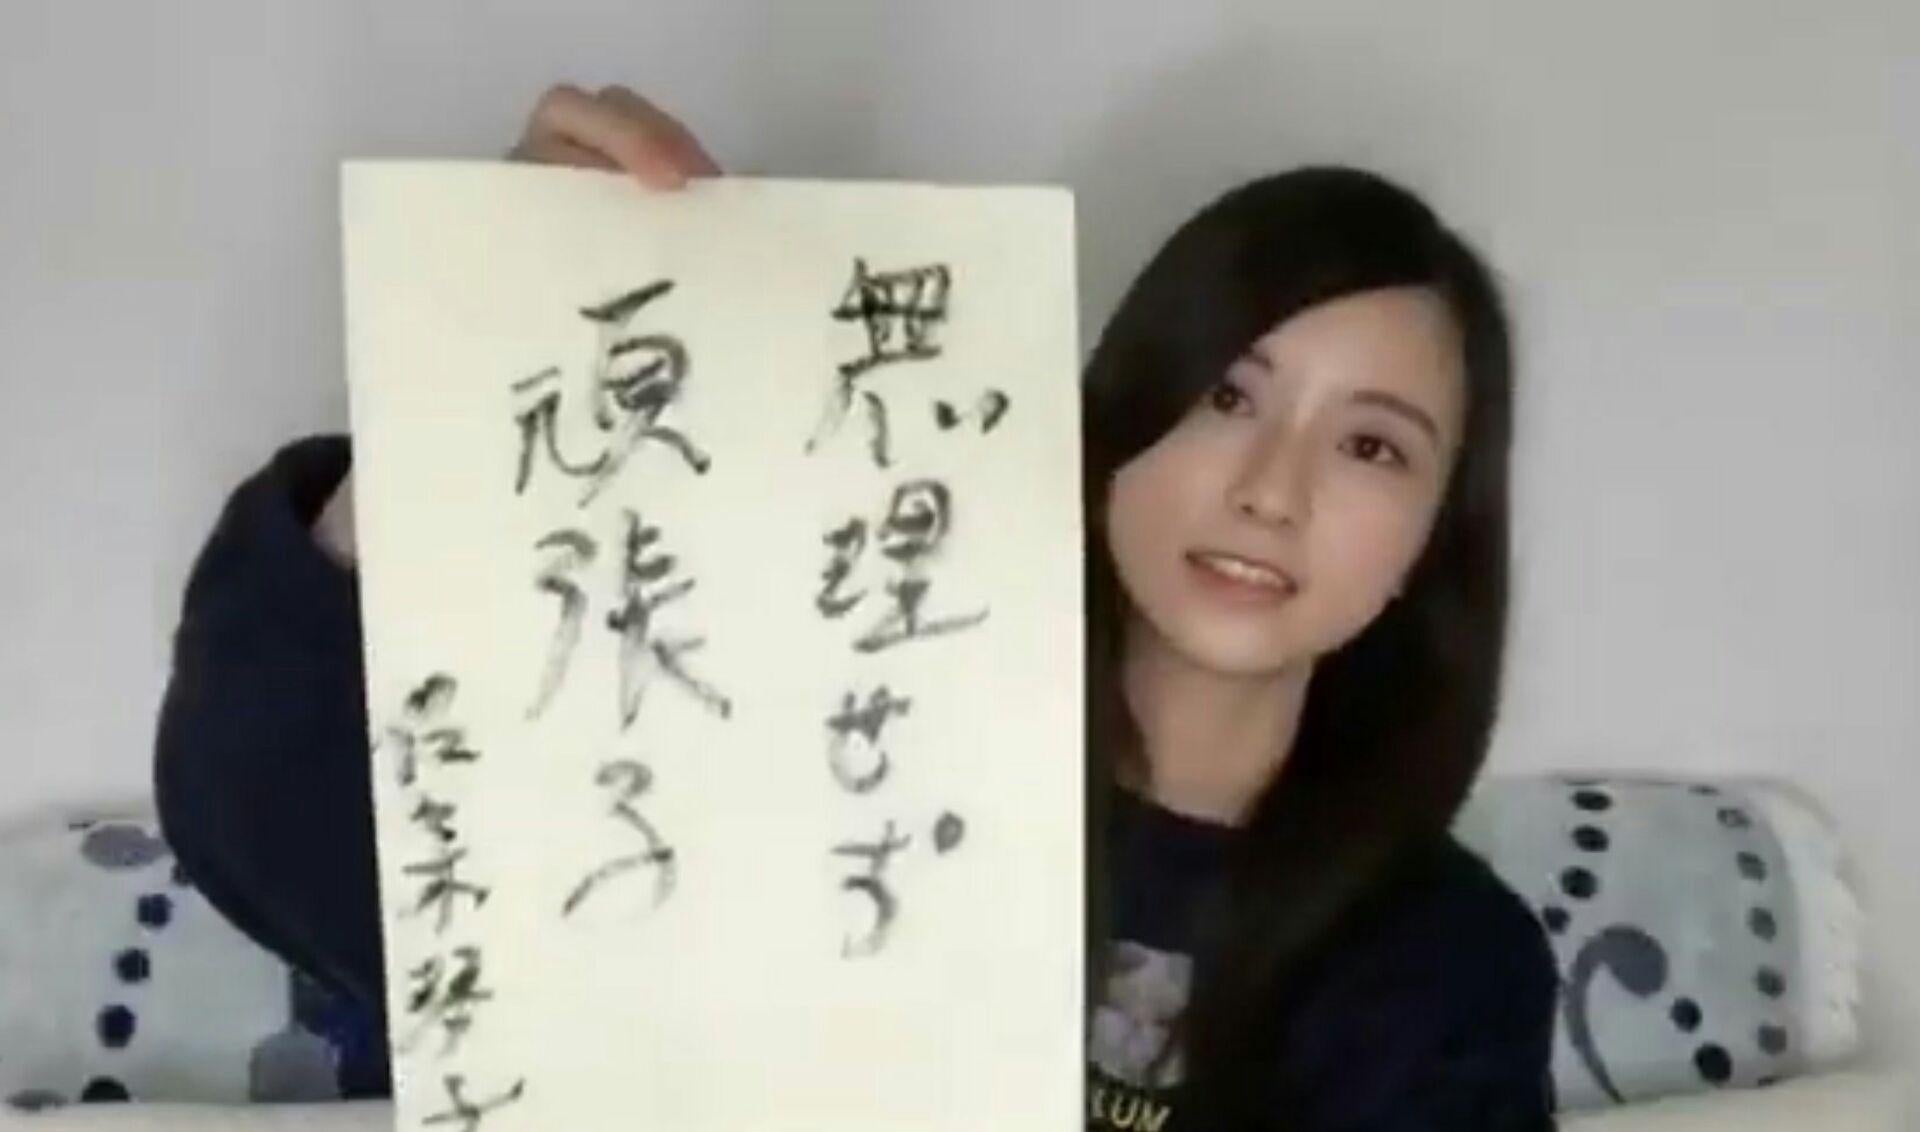 無理せず
頑張る
佐々木琴子
LUM